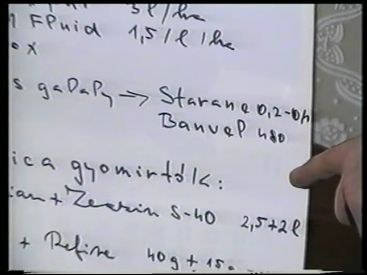 3 l/ha
Fluid 1,5 / l / ha
ox
s gaDaPy → Starane 0,2-0,4
Banvel 480
ica gyomirtók:
+ Zeazin S-40 2,5+2 l
+ Refine 40g + 15